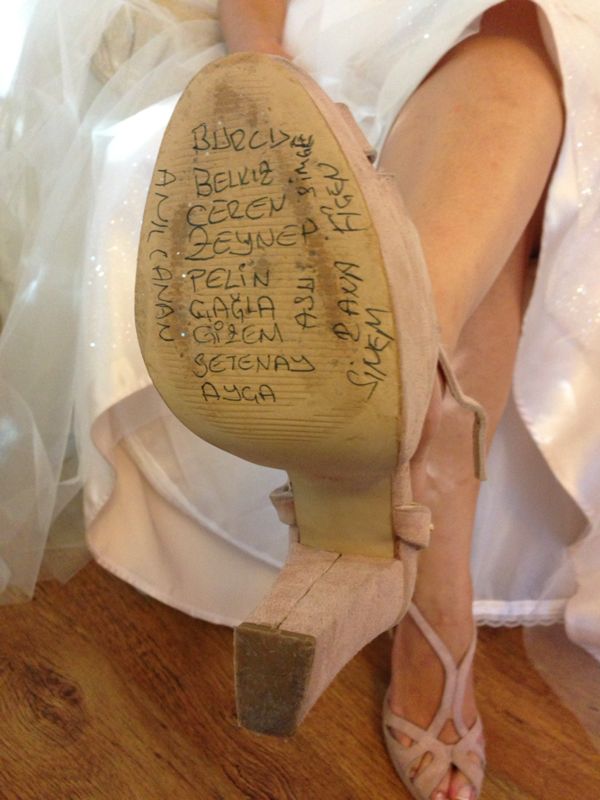 BURCU
BELKIZ
CEREN
ZEYNEP
PELİN
ÇAĞLA
GİZEM
SETENAY
AYÇA
ANIL CANAN
SİMGE
ASLI
FİGEN
SİNEM